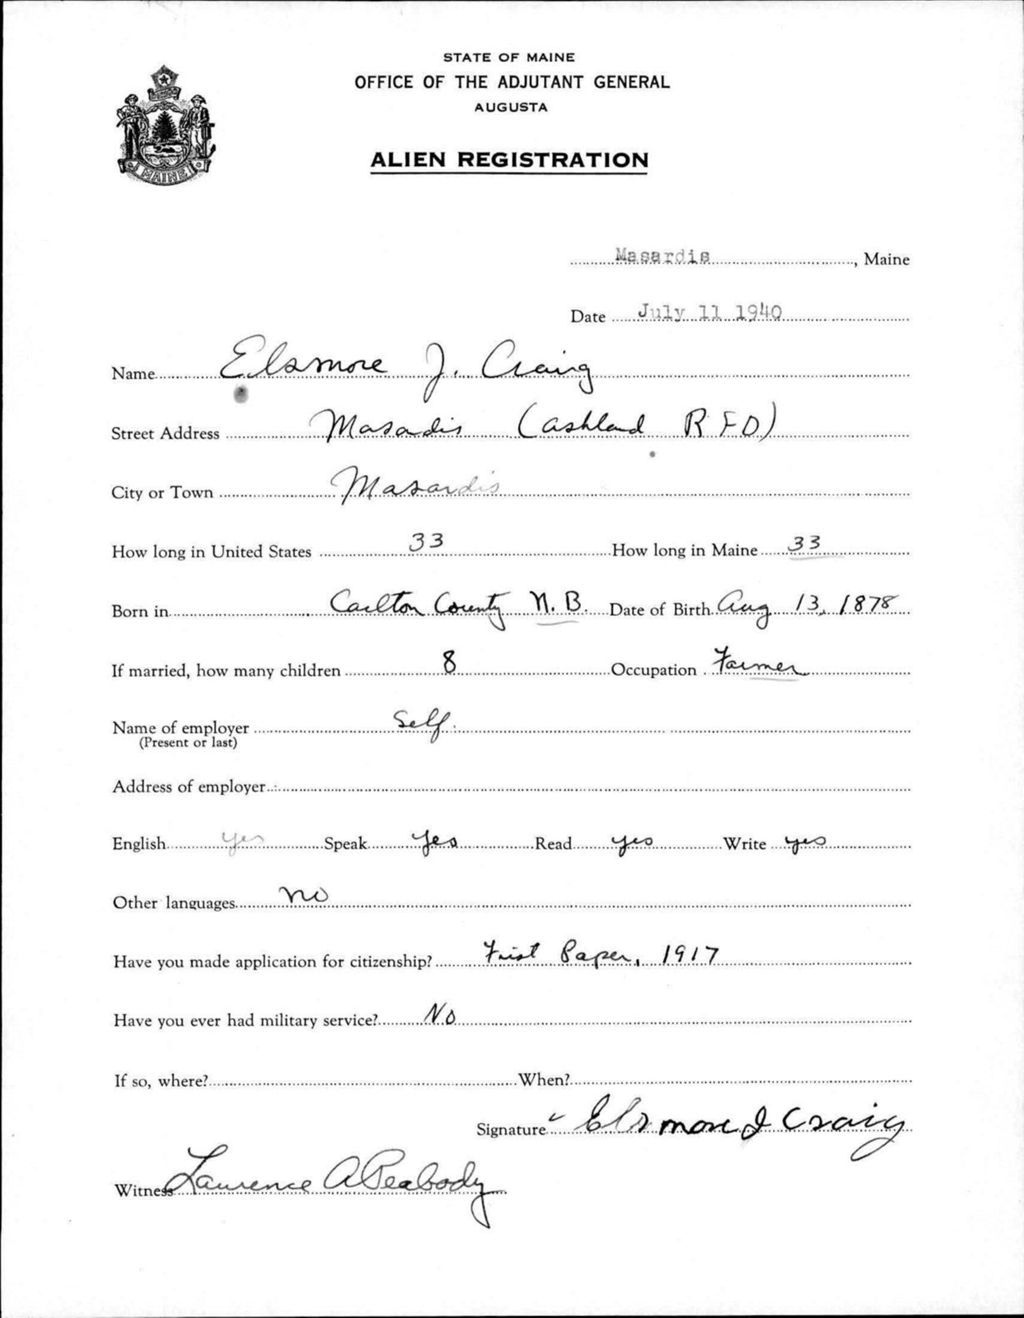 STATE OF MAINE
OFFICE OF THE ADJUTANT GENERAL
AUGUSTA
ALIEN REGISTRATION
MAINE
Masardis, Maine
Date July 11 1940
Name Elsmore J. Craig
Street Address Masadis (Ashland RFD)
City or Town Masardis
How long in United States 33 How long in Maine 33
Born in Carlton County N.B. Date of Birth Aug 13, 1878
If married, how many children 8 Occupation Farmer
Name of employer Self.
(Present or last)
Address of employer
English yes Speak Yes Read yes Write yes
Other languages no
Have you made application for citizenship? First Paper, 1917
Have you ever had military service? No
If so, where? When?
Signature Elsmore J Craig
Witness Laurence A Peabody